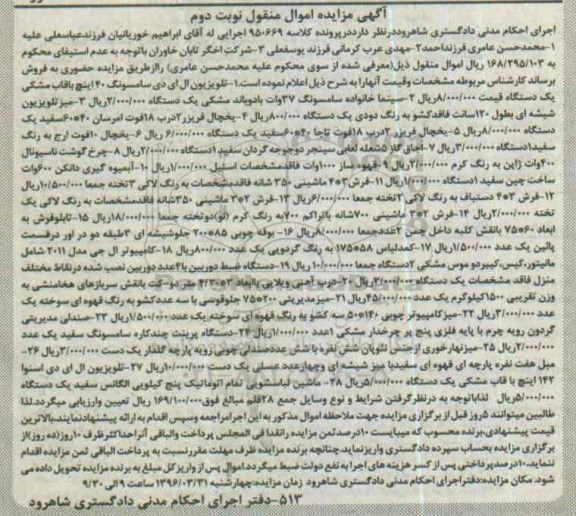 آگهی مزایده اموال منقول نوبت دوم
اجرای احکام مدنی دادگستری شاهرود درنظر دارد درپرونده کلاسه ۹۵۰۶۶۹ اجرایی له آقای ابراهیم خوریانیان فرزندعباسعلی علیه
۱-محمدحسن عامری فرزنداحمد۲-مهدی عرب کرمانی فرزند یوسفعلی ۳-شرکت اخگر تابان خاوران باتوجه به عدم استیفای محکوم
به ۱۶۸/۲۹۵/۱۰۳ ریال اموال منقول ذیل(معرفی شده از سوی محکوم علیه محمدحسن عامری) راازطریق مزایده حضوری به فروش
برساند کارشناس مربوطه مشخصات وقیمت آنهارا به شرح ذیل اعلام نموده است.۱-تلویزیون ال ای دی سامسونگ ۴۰ اینچ باقاب مشکی
یک دستگاه قیمت ۸/۰۰۰/۰۰۰ریال ۲-سینما خانواده سامسونگ ۳۷وات بادوباند مشکی یک دستگاه ۲/۰۰۰/۰۰۰ریال ۳-میزتلویزیون
شیشه ای بطول ۱۲۰سانت فاقدکشو به رنگ دودی یک دستگاه ۸۰۰/۰۰۰ریال ۴-یخچال فریزر۲درب ۱۸فوت امرسان ۴۰*۶۰سفید یک
دستگاه ۸/۰۰۰/۰۰۰ریال ۵-یخچال فریزر ۲درب ۱۸فوت تاجا ۴۰*۶۰سفید یک دستگاه ۶/۰۰۰/۰۰۰ ریال ۶-یخچال ۱۰فوت ارج به رنگ
سفید۱دستگاه ۳/۰۰۰/۰۰۰ریال ۷-اجاق گاز ۵شعله لعابی سینجر دوجوجه گردان سفید ۱دستگاه ۲/۰۰۰/۰۰۰ریال ۸-چرخ گوشت ناسیونال
۴۰۰وات ژاپن به رنگ کرم ۲/۰۰۰/۰۰۰ریال ۹-قهوه ساز ۱۰۰۰وات فاقدمشخصات استیل ۱/۰۰۰/۰۰۰ریال ۱۰-آبمیوه گیری دانکن ۶۰۰وات
ساخت چین سفید ۱دستگاه ۱/۰۰۰/۰۰۰ریال ۱۱-فرش۳*۴ ماشینی ۳۵۰ شانه فاقدمشخصات به رنگ لاکی ۳تخته جمعا ۱۰/۵۰۰/۰۰۰ریال
۱۲-فرش ۳*۴ دستباف به رنگ لاکی ۲تخته جمعا ۶/۰۰۰/۰۰۰ریال ۱۳-فرش ۲*۳ ماشینی ۳۵۰شانه فاقدمشخصات به رنگ لاکی یک
تخته ۲/۰۰۰/۰۰۰ریال ۱۴-فرش ۳*۴ ماشینی ۷۰۰شانه باتراکم ۷۰۰به رنگ کرم (نو)دوتخته جمعا ۱۸/۰۰۰/۰۰۰ریال ۱۵-تابلوفرش به
ابعاد ۶۰*۷۵ بانقش کلبه داخل چمن ۲عددجمعا ۸/۰۰۰/۰۰۰ریال ۱۶- بوفه چوبی ۸۵*۲۰۰ جلوشیشه ای ۴طبقه دو در اور درقسمت
پائین یک عدد ۱/۵۰۰/۰۰۰ریال ۱۷-کمدلباس ۵۸*۱۷۵ به رنگ گردویی یک عدد ۸۰۰/۰۰۰ریال ۱۸-کامپیوتر ال جی مدل ۲۰۱۱ شامل
مانیتور،کیس،کیبردو موس مشکی ۲دستگاه جمعا ۱۰/۰۰۰/۰۰۰ ریال ۱۹-دستگاه ضبط دوربین با۴عدد دوربین نصب شده درنقاط مختلف
منزل فاقد مشخصات یک دستگاه ۳/۰۰۰/۰۰۰ریال ۲۰-درب آهنی ویلایی باابعاد متر دو-کت بانقش سربازهای هخامنشی به
وزن تقریبی ۱۵۰۰کیلوگرم یک عدد ۴۵/۰۰۰/۰۰۰ریال ۲۱-میزمدیریتی ۷۵*۲۰۰ جلوقوسی با سه عددکشو به رنگ قهوه ای سوخته یک
عدد ۳/۰۰۰/۰۰۰ریال ۲۲-میزکامپیوتر چوبی ۱۴۰*۵۰ سه کشو به رنگ قهوه ای سوخته یک عدد ۱/۵۰۰/۰۰۰ریال ۲۳-صندلی مدیریتی
گردون رویه چرم با پایه فلزی پنج پر چرخدار مشکی ۱عدد ۱/۰۰۰/۰۰۰ریال ۲۴-دستگاه پرینت چندکاره سامسونگ سفید یک عدد
۲/۰۰۰/۰۰۰ریال ۲۵-میزنهارخوری ازجنس نئوپان شش نفره با شش عددصندلی چوبی رویه پارچه گلدار یک دست ۳/۰۰۰/۰۰۰ریال ۲۶-
مبل هفت نفره پارچه ای قهوه ای سفیدبا میز شیشه ای وچهارعدد عسلی یک دست ۱۰/۰۰۰/۰۰۰ریال ۲۷-تلویزیون ال ای دی اسنوا
۱۴۲ اینچ با قاب مشکی یک دستگاه ۵/۰۰۰/۰۰۰ریال ۲۸- ماشین لباسشویی تمام اتوماتیک پنج کیلویی الگانس سفید یک دستگاه
۵/۰۰۰/۰۰۰ریال لذاباتوجه به درنظرگرفتن شرایط و نوع وسایل جمع ۲۸قلم مبالغ فوق۱۶۹/۱۰۰/۰۰۰ ریال تعیین وارزیابی میگردد.لذا
طالبین میتوانند ۵روز قبل از برگزاری مزایده جهت ملاحظه اموال مذکور به این اجرامراجعه وسپس اقدام به ارائه پیشنهادنمایند.بالاترین
قیمت پیشنهادی،برنده محسوب که میبایست ۱۰درصدثمن مزایده رانقدا فی المجلس پرداخت والباقی آنراحداکثرظرف ۱۰روز(ده روز)از
برگزاری مزایده بحساب سپرده دادگستری واریزنماید.چنانچه برنده مزایده ظرف مهلت مقررنسبت به پرداخت الباقی ثمن مزایده اقدام
ننماید،۱۰درصدپرداختی پس از کسر هزینه های اجرا به نفع دولت ضبط میگردد.اموال پس از واریزکل مبلغ به برنده مزایده تحویل داده می
شود. مکان مزایده:دفتراجرای احکام مدنی دادگستری شاهرود زمان مزایده:چهارشنبه ۱۳۹۶/۰۳/۳۱ ساعت ۹ الی ۹/۳۰
۵۱۳-دفتر اجرای احکام مدنی دادگستری شاهرود